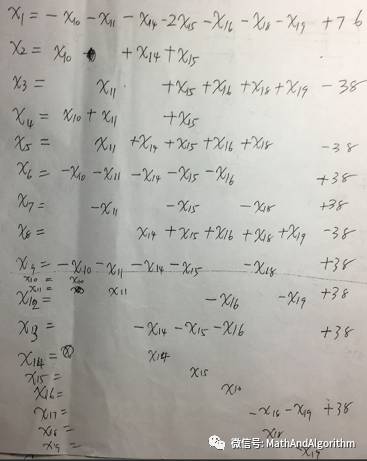 x1 = - x10 - x11 - x14 - 2x15 - x16 - x18 - x19 + 76
x2 = x10 + x14 + x15
x3 = x11 + x15 + x16 + x18 + x19 - 38
x14 = x10 + x11 + x15
x5 = x11 + x14 + x15 + x16 + x18 - 38
x6 = - x10 - x11 - x14 - x15 - x16 + 38
x7 = - x11 - x15 - x18 + 38
x8 = x14 + x15 + x16 + x18 + x19 - 38
x9 = - x10 - x11 - x14 - x15 - x18 + 38
x10 = x10
x11 = x11
x12 = - x16 - x19 + 38
x13 = - x14 - x15 - x16 + 38
x14 = x14
x15 = x15
x16 = x16
x17 = - x18 - x19 + 38
x18 = x18
x19 = x19
微信号: MathAndAlgorithm